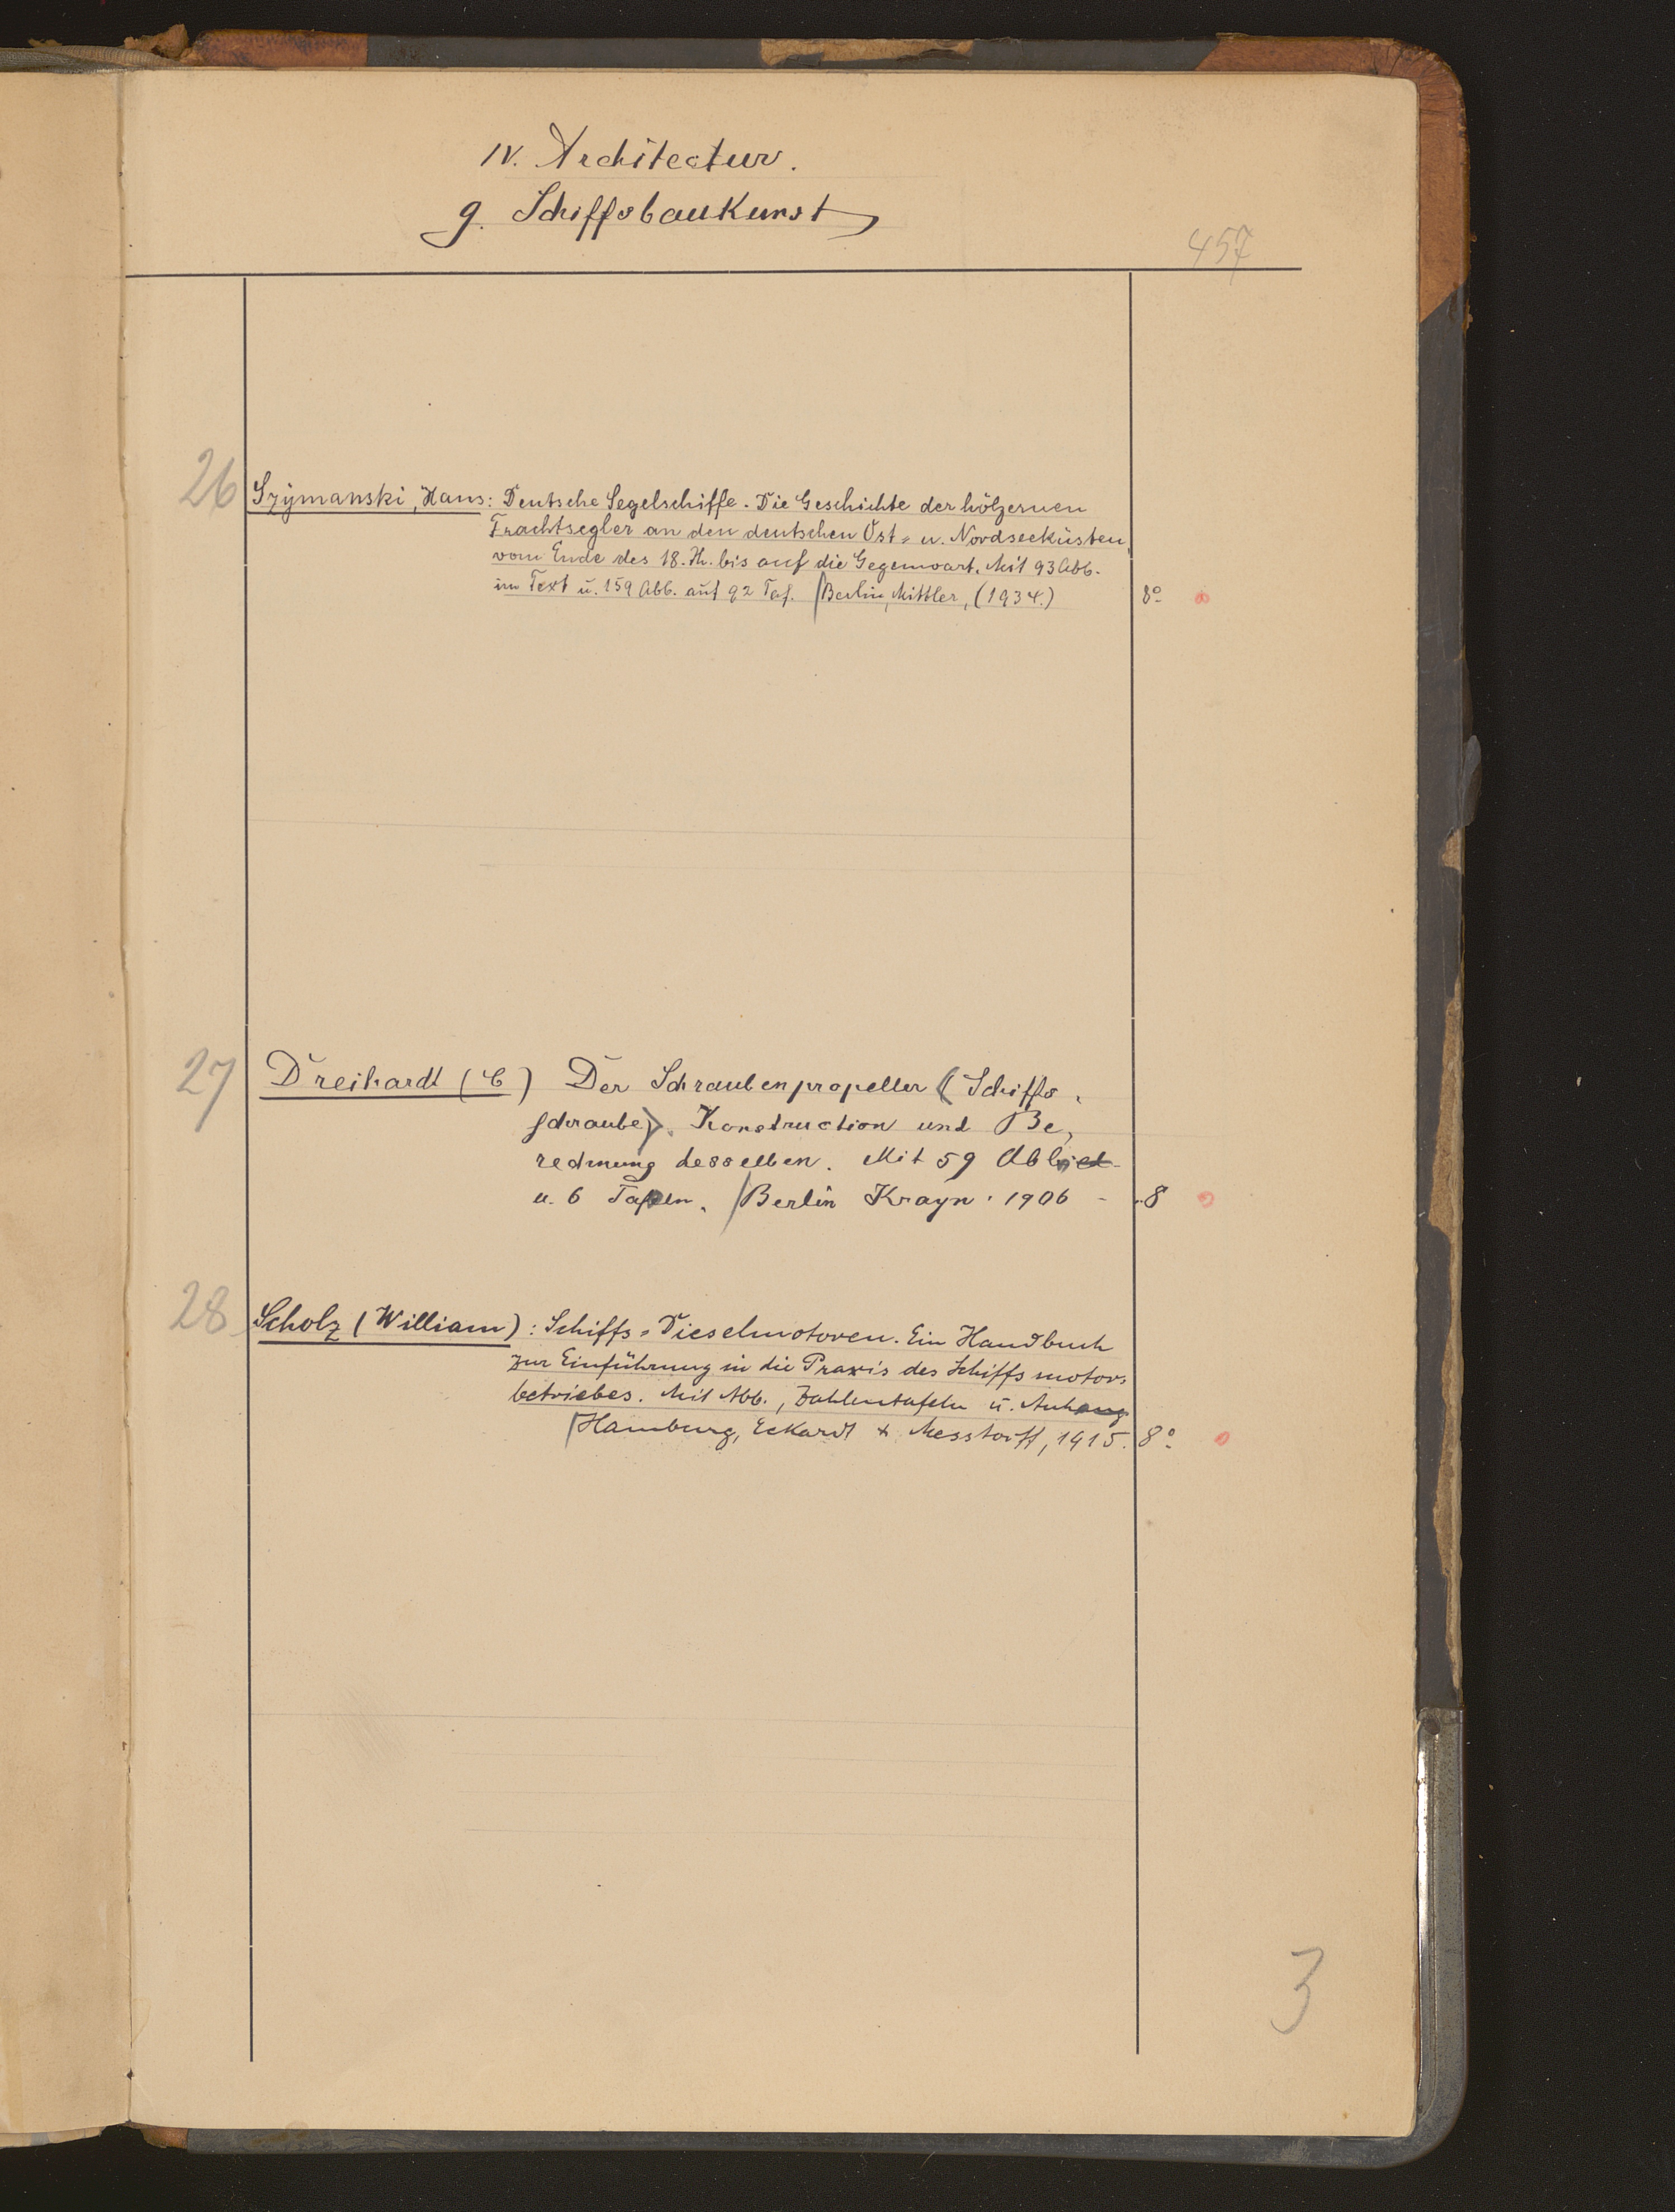 IV. Architectur.
g. Schiffsbaukunst
457
26 Szymanski, Hans: Deutsche Segelschiffe. Die Geschichte der hölzernen
Frachtsegler an den deutschen Ost= u. Nordseeküsten
vom Ende des 18. Jh. bis auf die Gegenwart. Mit 93 Abb.
im Text u. 159 Abb. auf 92 Taf. Berlin, Mittler, (1934.) 8°
27 Dreihardt (C) Der Schraubenpropeller (Schiffs,
schraube). Konstruction und Be,
rechnung desselben. Mit 59 Abb
u. 6 Tafeln. Berlin Krayn. 1906 - 8
28 Scholz (William): Schiffs=Dieselmotoren. Ein Handbuch
zur Einführung in die Praxis des Schiffsmotors
betriebes. Mit Abb., Zahlentafeln u. Anhang
Hamburg, Eckardt & Messtorff, 1915. 8°
3